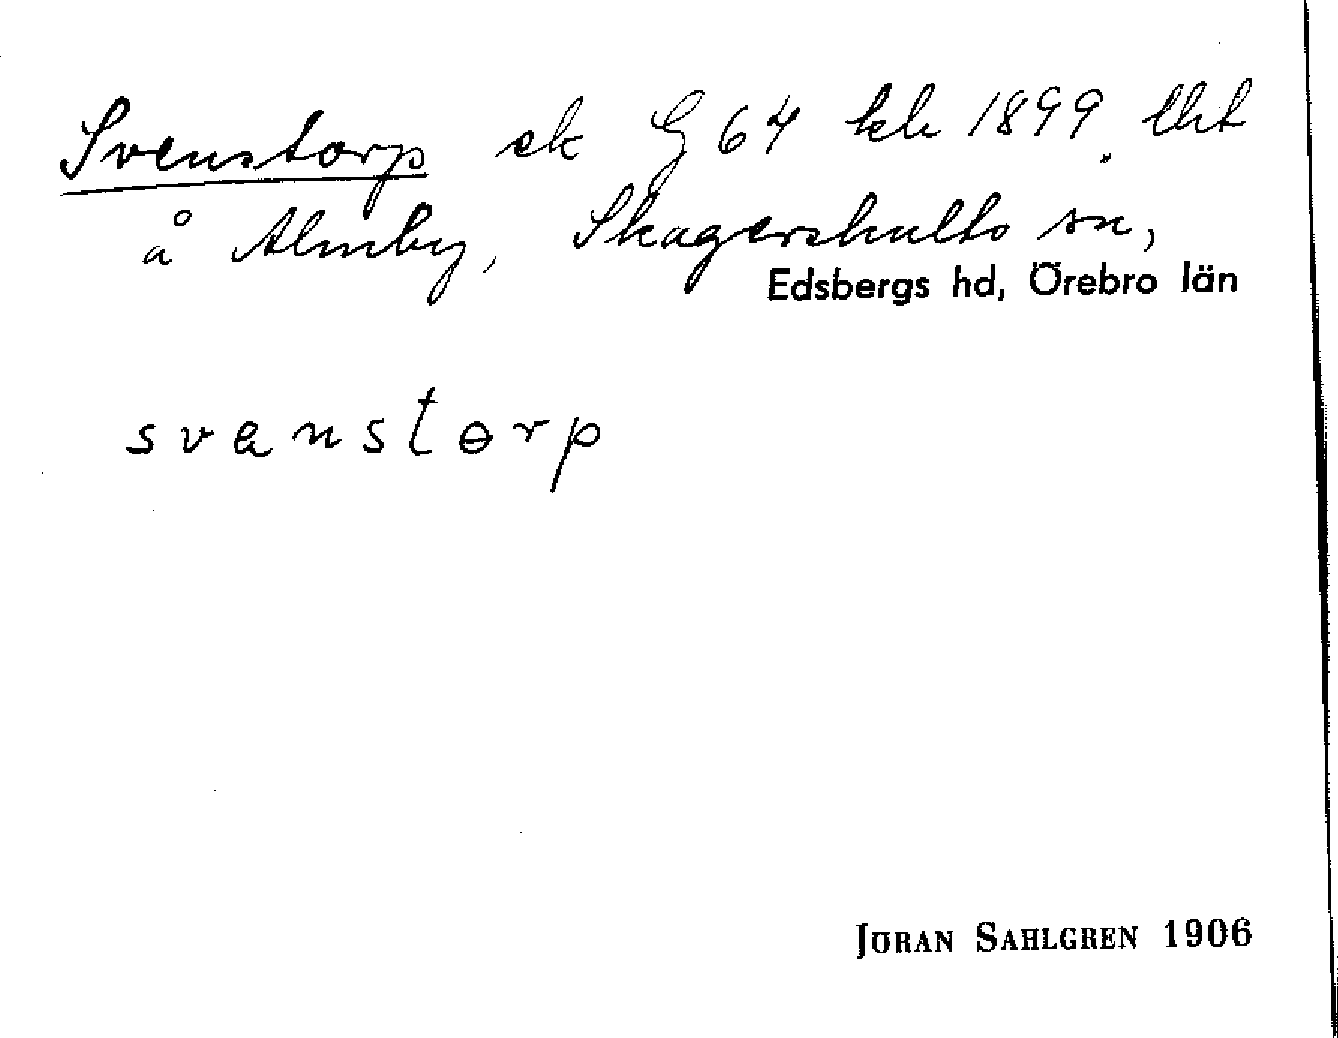 Svenstorp ek G 64 kb 1899. Lht
å Almby, Skagershults sn,
Edsbergs hd, Örebro län
svanstɵrp
JÖRAN SAHLGREN 1906